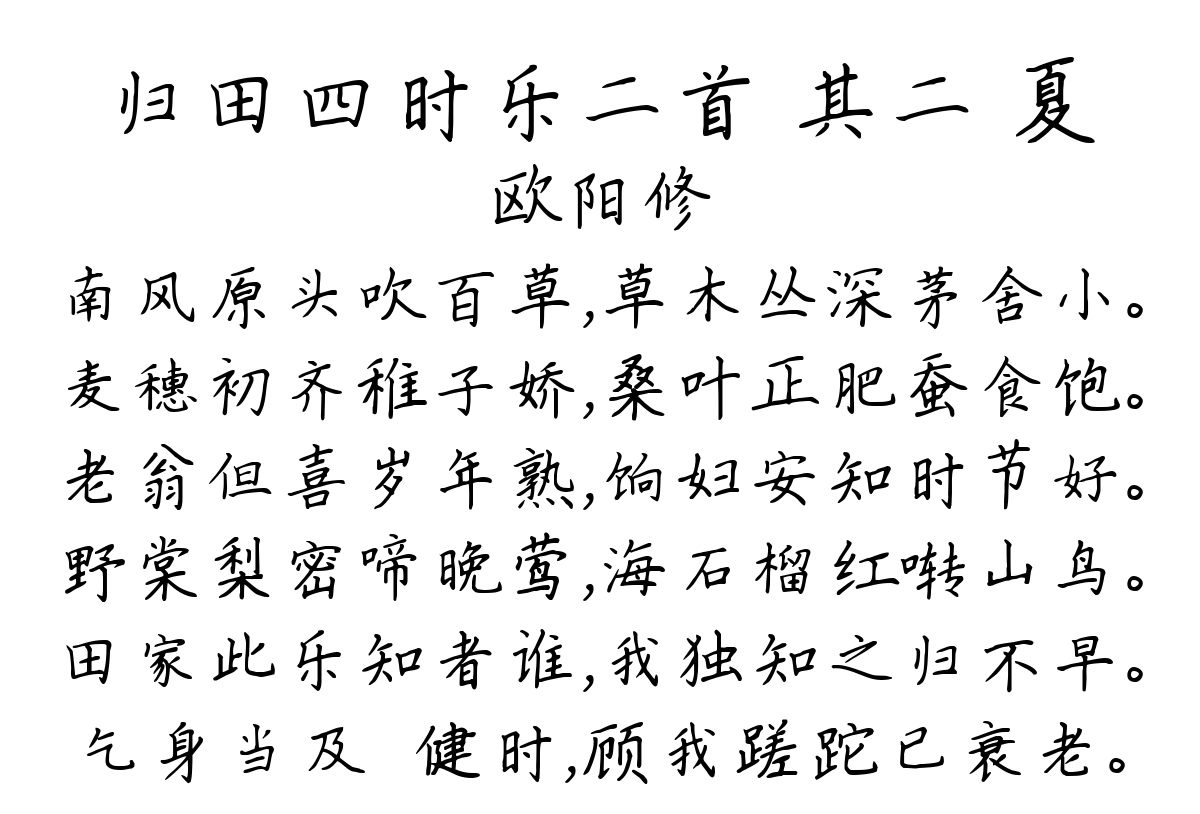 归田四时乐二首 其二 夏
欧阳修
南风原头吹百草,草木丛深茅舍小。
麦穗初齐稚子娇,桑叶正肥蚕食饱。
老翁但喜岁年熟,饷妇安知时节好。
野棠梨密啼晚莺,海石榴红啭山鸟。
田家此乐知者谁,我独知之归不早。
乞身当及 健时,顾我蹉跎已衰老。